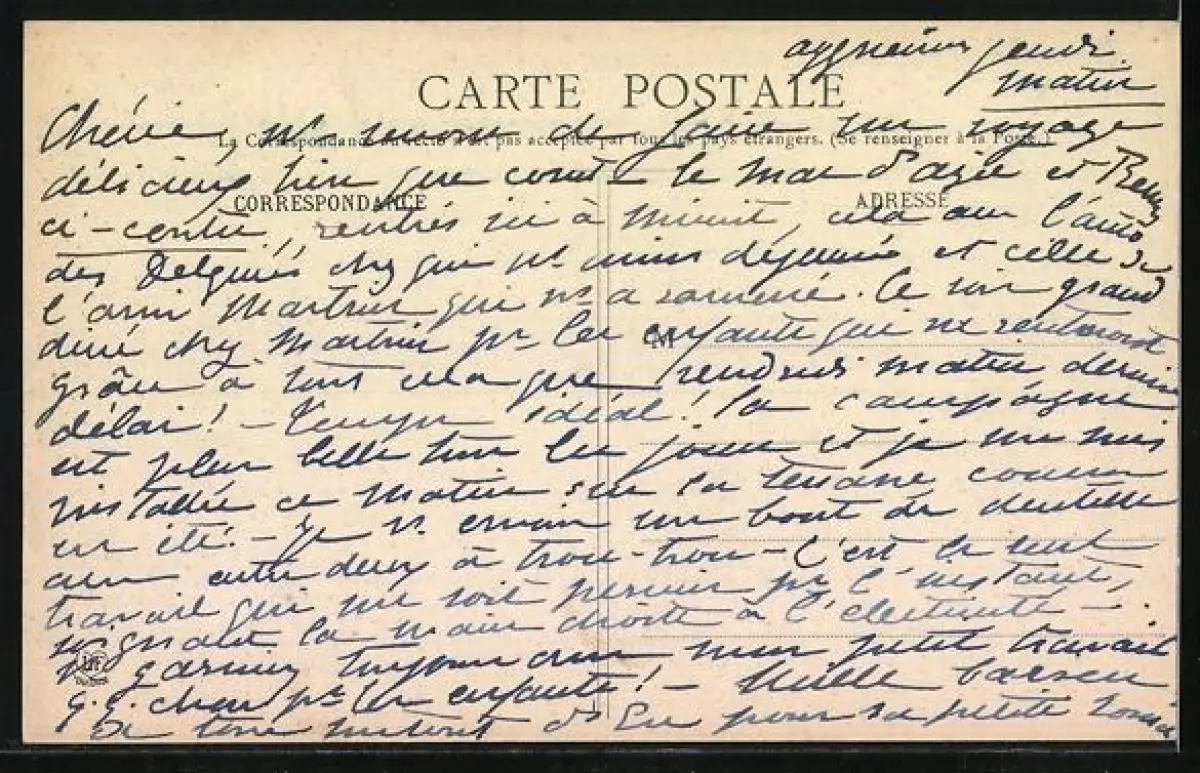 jeudi
matin
CARTE POSTALE
La Correspondance au recto n'est pas acceptée par tous les pays étrangers. (Se renseigner à la Poste.)
Chérie, ns venons de faire un voyage
délicieux bien que court — le mas d'azil et
CORRESPONDANCE
ADRESSE
ci-contre, rentrés ici à minuit, cela avec l'auto
des chez qui ns avions déjeuné et celle de
l'ami qui ns a ramené. Ce soir grand
dîné chez pr les enfants qui ne rentreront
M
grâce à tout cela que vendredi matin dernier
délai! — Temps idéal! la campagne
est plus belle tous les jours et je me suis
installée ce matin sur la terrasse comme
en été. — Je un bout de dentelle
avec entre deux à trou-trou — C'est le seul
travail qui me soit permis pr l'instant,
soignant la main droite à l'électricité —
garnir toujours avec mon petit travail
q.q. chose pr les enfants! — Mille baisers
de tous surtout de pour sa petite